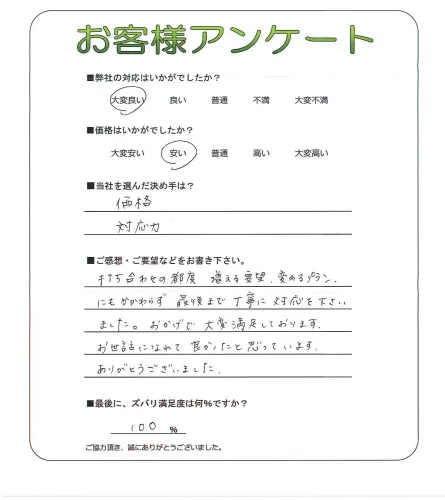 お客様アンケート
■弊社の対応はいかがでしたか?
大変良い 良い 普通 不満 大変不満
■価格はいかがでしたか?
大変安い 安い 普通 高い 大変高い
■当社を選んだ決め手は?
価格
対応力
■ご感想・ご要望などをお書き下さい。
打ち合わせの都度 増える要望、変わるプラン、
にもかかわらず 最後まで丁寧に対応を下さい
ました。おかげで大変満足しております。
お世話になれて良かったと思っています。
ありがとうございました。
■最後に、ズバリ満足度は何%ですか?
100 %
ご協力頂き、誠にありがとうございました。